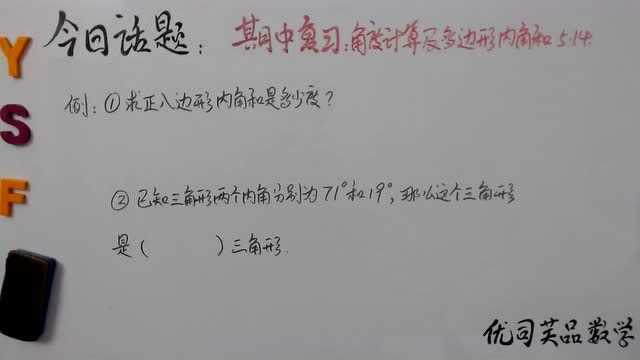 今日话题：期中复习：角度计算及多边形内角和 5.14.
YSF
例：①求正八边形内角和是多少度？
②已知三角形两个内角分别为71°和19°，那么这个三角形
是（ ）三角形.
优司芙品数学